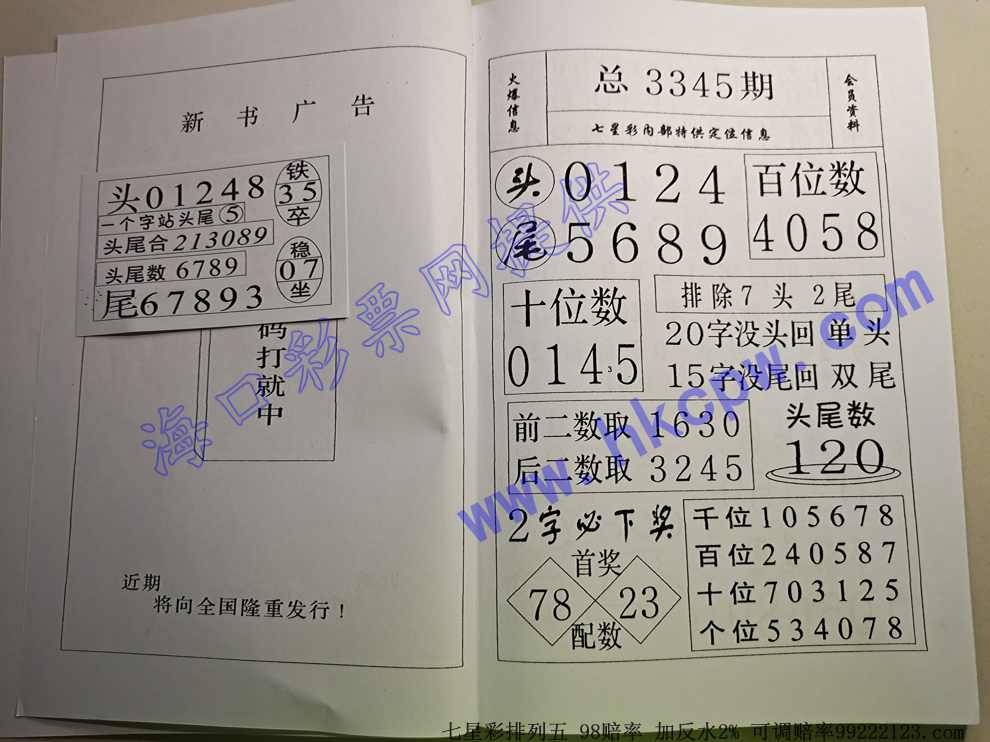 新书广告
头01248
一个字站头尾⑤
头尾合213089
头尾数6789
尾67893
铁
35
卒
稳
07
坐
码
打
就
中
近期
将向全国隆重发行！
火爆信息
总3345期
七星彩内部特供定位信息
会员资料
头0124
尾5689
百位数
4058
十位数
01435
排除7头2尾
20字没头回单头
15字没尾回双尾
前二数取1630
后二数取3245
头尾数
120
2字必下奖
首奖
78 23
配数
千位105678
百位240587
十位703125
个位534078
海口彩票网提供
www.hkcpw.com
七星彩排列五 98赔率 加反水2% 可调赔率99222123.com